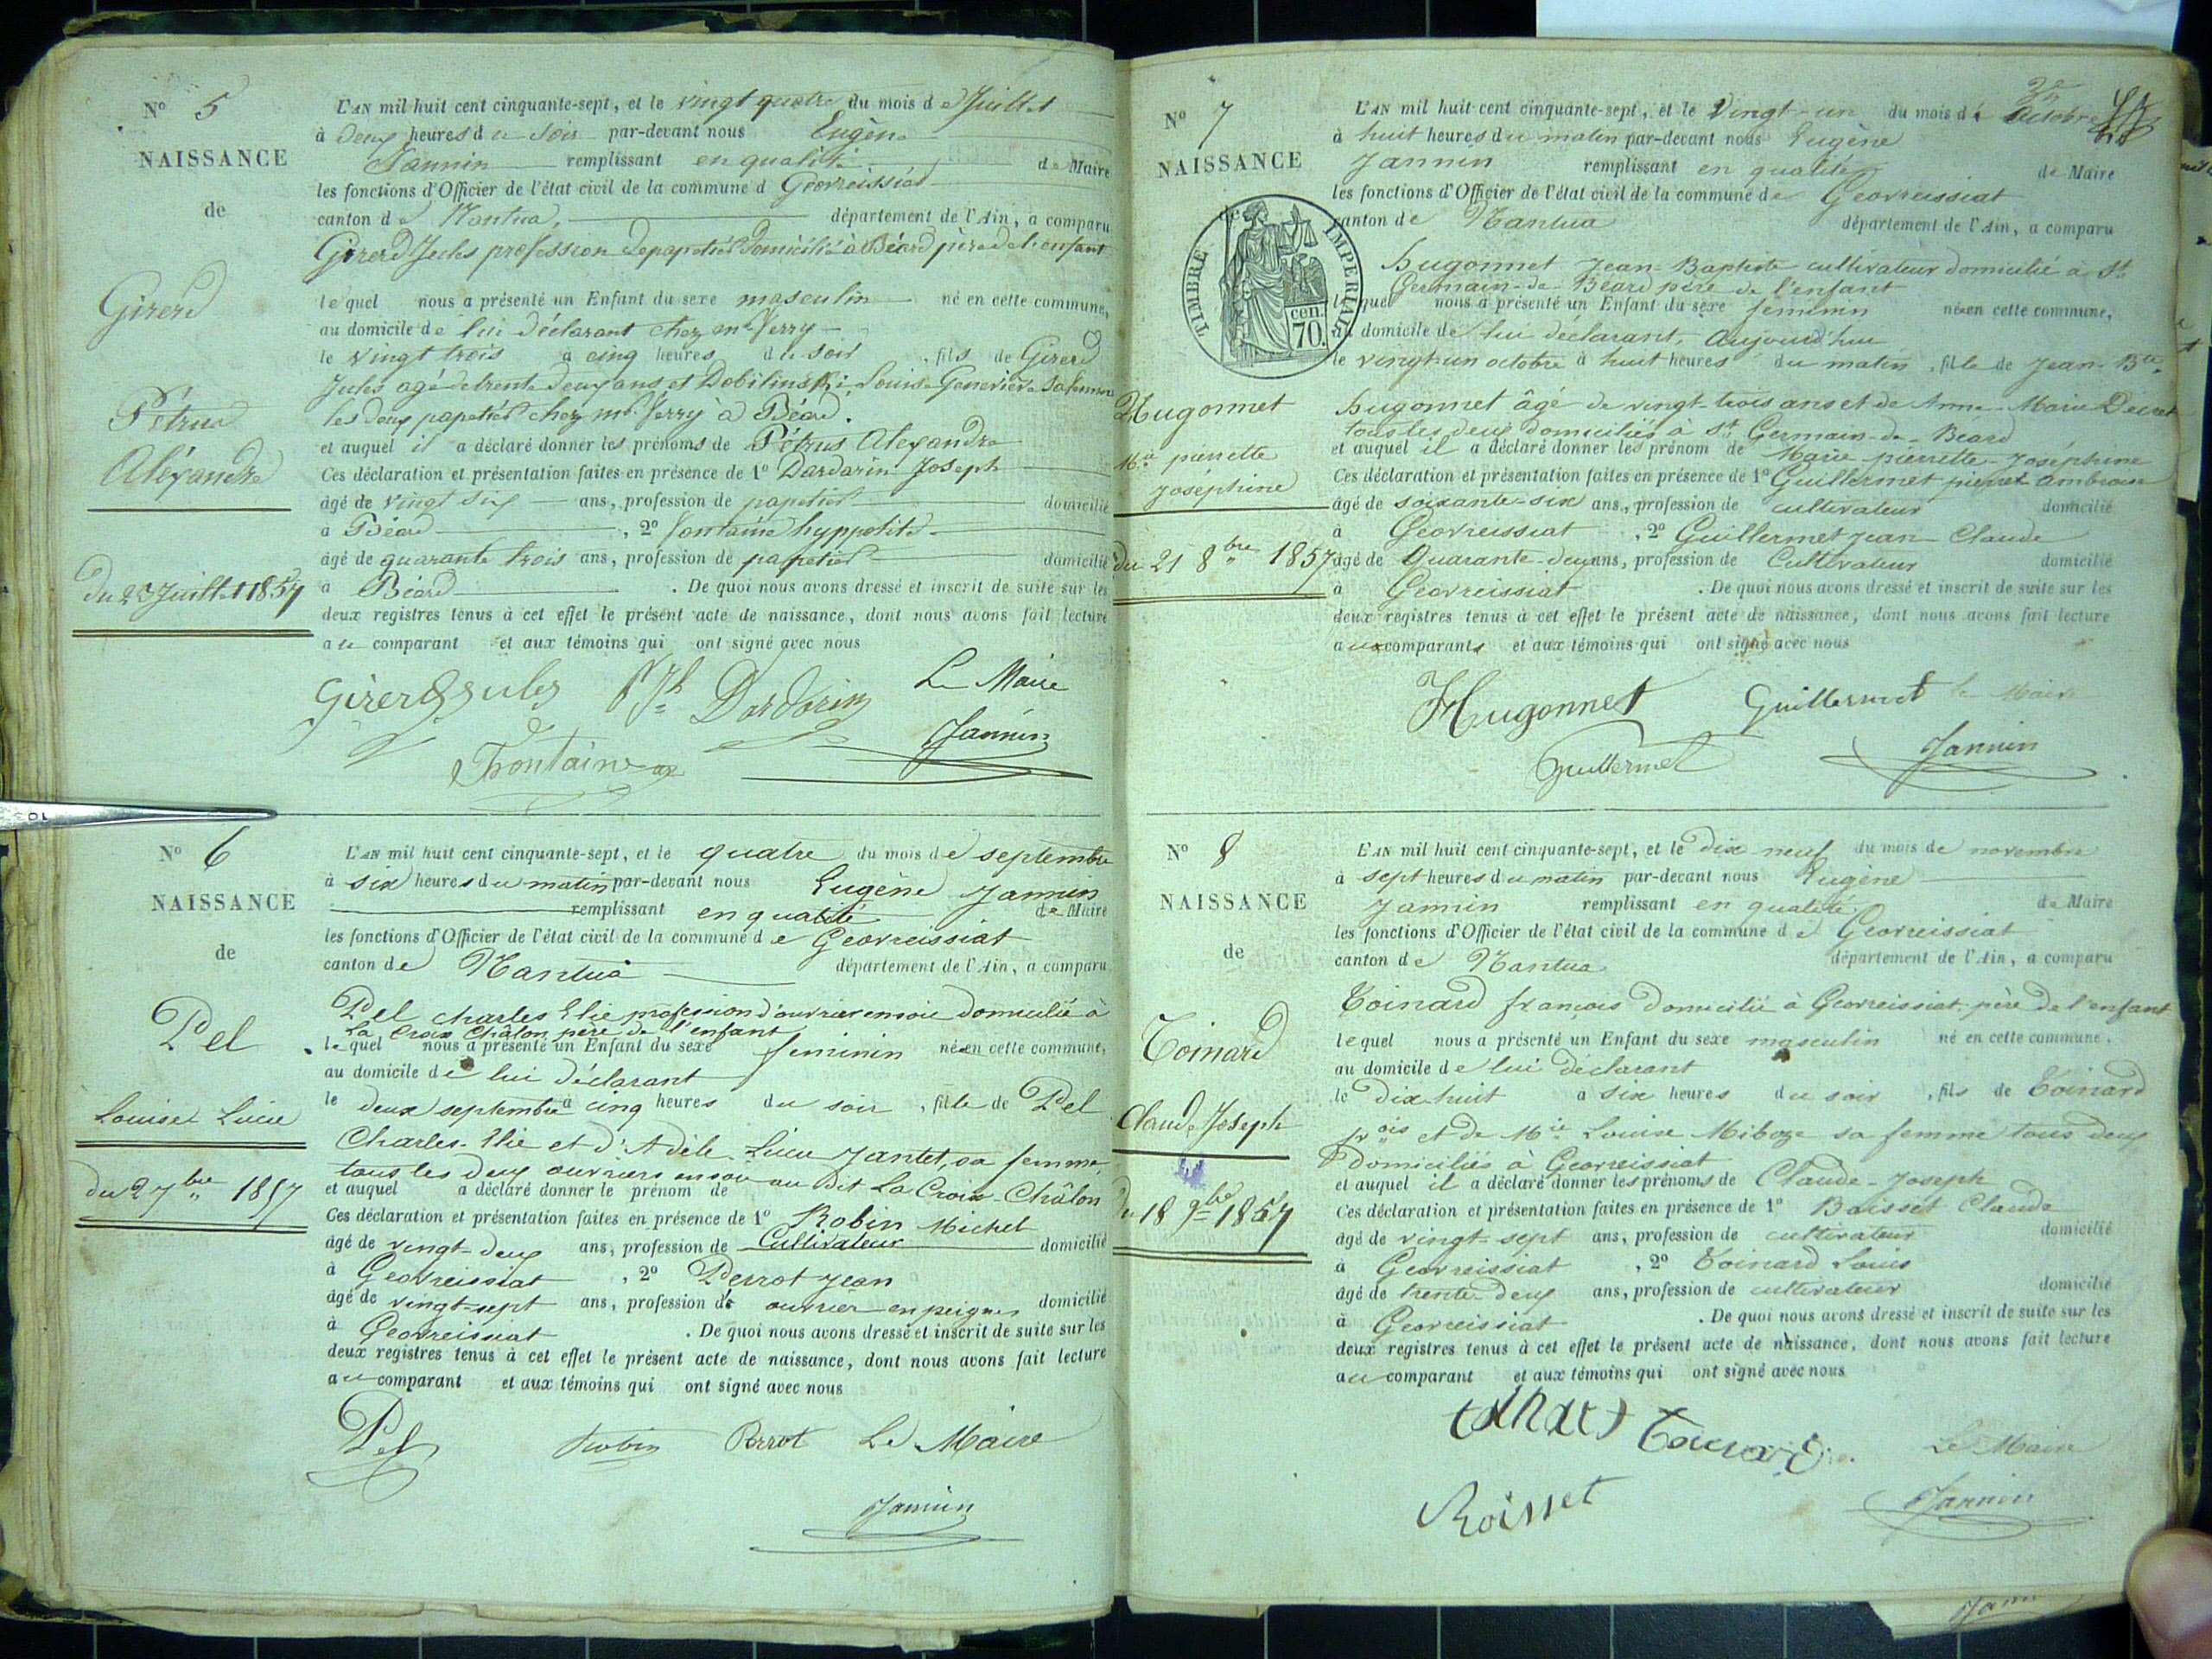 N° 5
NAISSANCE
de
Girerd
Pétrus
Aléxandre
du 23 Juillet 1857
L'AN mil huit cent cinquante-sept, et le vingt quatre du mois de Juillet
à deux heures du soir par-devant nous Eugène
Jannin remplissant en qualité de Maire
les fonctions d'Officier de l'état civil de la commune d Géovreissiat
canton de Nantua, département de l'Ain, a comparu
Girerd Jules profession de papetier domicilié à Béard père de l'enfant
lequel nous a présenté un Enfant du sexe masculin né en cette commune,
au domicile de lui déclarant chez mr Verry
le vingt trois à cinq heures du soir, fils de Girerd
Jules agé de trente deux ans et Dobilinski Louise Geneviève sa femme
les deux papetiers chez mr Verry à Béard.
et auquel il a déclaré donner les prénoms de Pétrus Alexandre
Ces déclaration et présentation faites en présence de 1° Dardarin Joseph
âgé de vingt six ans, profession de papetier domicilié
à Béard, 2° fontaine hyppolite
âgé de quarante trois ans, profession de papetier domicilié
à Béard. De quoi nous avons dressé et inscrit de suite sur les
deux registres tenus à cet effet le présent acte de naissance, dont nous avons fait lecture
au comparant et aux témoins qui ont signé avec nous
Girerd Jules Jh Dardarin Le Maire
Fontaine Jannin
N° 6
NAISSANCE
de
Pel
Louise Lucie
du 2 7bre 1857
L'AN mil huit cent cinquante-sept, et le quatre du mois de septembre
à six heures du matin par-devant nous Eugène Jannin
remplissant en qualité de Maire
les fonctions d'Officier de l'état civil de la commune de Géovreissiat
canton de Nantua département de l'Ain, a comparu
Pel charles Elie profession d'ouvrier en soie domicilié à
La Croix Châlon, père de l'enfant
lequel nous a présenté un Enfant du sexe feminin né en cette commune,
au domicile de lui déclarant
le deux septembre à cinq heures du soir, fille de Pel
Charles-Elie et d'Adèle-Lucie Jantet, sa femme,
tous les deux ouvriers en soie au dit La Croix-Châlon
et auquel a déclaré donner le prénom de
Ces déclaration et présentation faites en présence de 1° Robin Michel
âgé de vingt-deux ans, profession de Cultivateur domicilié
à Géovreissiat, 2° Perrot Jean
âgé de vingt-sept ans, profession de ouvrier en peignes domicilié
à Géovreissiat. De quoi nous avons dressé et inscrit de suite sur les
deux registres tenus à cet effet le présent acte de naissance, dont nous avons fait lecture
au comparant et aux témoins qui ont signé avec nous
Pel Robin Perrot Le Maire
Jannin
N° 7
NAISSANCE
de
TIMBRE IMPERIAL
cen. 70.
Hugonnet
Mie pierrette
Joséphine
du 21 8bre 1857
L'AN mil huit cent cinquante-sept, et le Vingt-un du mois de octobre
à huit heures du matin par-devant nous Eugène
Jannin remplissant en qualité de Maire
les fonctions d'Officier de l'état civil de la commune de Géovreissiat
canton de Nantua département de l'Ain, a comparu
hugonnet Jean-Baptiste cultivateur domicilié à St
Germain-de-Béard père de l'enfant
lequel nous a présenté un Enfant du sexe feminin né en cette commune,
au domicile de lui déclarant, Aujourd'hui
le vingt-un octobre à huit heures du matin, fille de Jean-Bte
hugonnet âgé de vingt-trois ans et de Anne-Marie Decret
tous les deux domiciliés à St Germain-de-Beard
et auquel il a déclaré donner les prénom de Marie-pierrette-Joséphine
Ces déclaration et présentation faites en présence de 1° Guillermet pierre ambroise
âgé de soixante-six ans, profession de cultivateur domicilié
à Géovreissiat, 2° Guillermet Jean-Claude
âgé de Quarante-deux ans, profession de Cultivateur domicilié
à Géovreissiat. De quoi nous avons dressé et inscrit de suite sur les
deux registres tenus à cet effet le présent acte de naissance, dont nous avons fait lecture
aux comparants et aux témoins qui ont signé avec nous
Hugonnet Guillermet le Maire
Guillermet Jannin
N° 8
NAISSANCE
de
Toinard
Claude Joseph
du 18 9bre 1857
L'AN mil huit cent cinquante-sept, et le dix neuf du mois de novembre
à sept heures du matin par-devant nous Eugène
Jannin remplissant en qualité de Maire
les fonctions d'Officier de l'état civil de la commune de Géovreissiat
canton de Nantua département de l'Ain, a comparu
Toinard françois domicilié à Géovreissiat père de l'enfant
lequel nous a présenté un Enfant du sexe masculin né en cette commune,
au domicile de lui déclarant
le Dix huit à six heures du soir, fils de Toinard
frois et de Mie Louise Miboze sa femme tous deux
domiciliés à Géovreissiat
et auquel il a déclaré donner les prénoms de Claude-Joseph
Ces déclaration et présentation faites en présence de 1° Boisset Claude
âgé de vingt-sept ans, profession de cultivateur domicilié
à Géovreissiat, 2° Toinard Louis
âgé de trente deux ans, profession de cultivateur domicilié
à Géovreissiat. De quoi nous avons dressé et inscrit de suite sur les
deux registres tenus à cet effet le présent acte de naissance, dont nous avons fait lecture
au comparant et aux témoins qui ont signé avec nous
Toinard Le Maire
Boisset Jannin